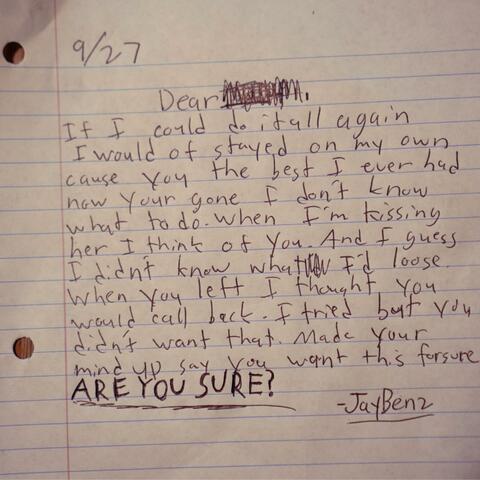 9/27
Dear
If I could do it all again
I would of stayed on my own
cause you the best I ever had
now your gone I don't know
what to do. when I'm kissing
her I think of you. And I guess
I didn't know what I'd loose.
When you left I thought you
would call back. I tried but you
didnt want that. Made your
mind up say you want this forsure
ARE YOU SURE?
-JayBenz